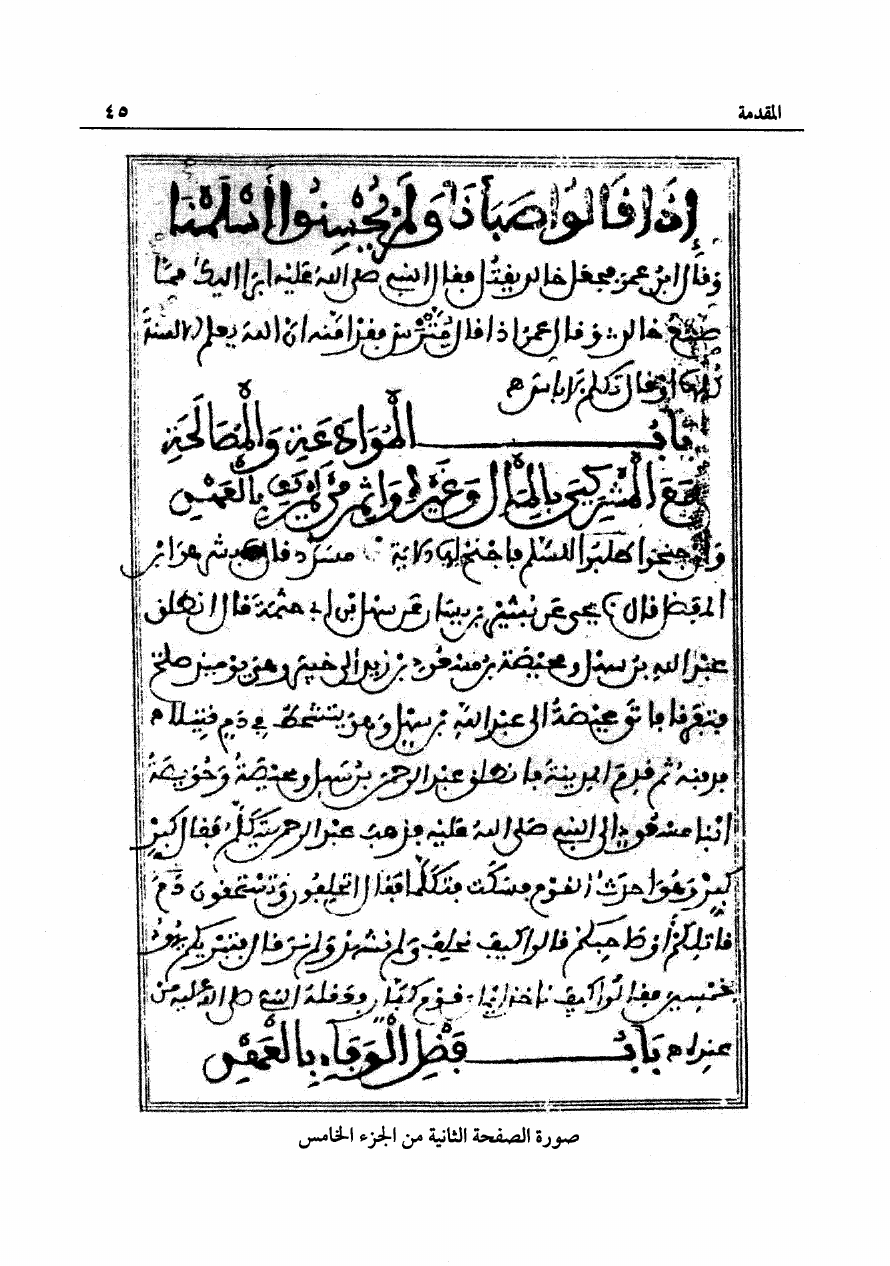 المقدمة ٤٥
إذا قالوا صبأنا ولم يحسنوا أسلمنا
وقال ابن عمر فجعل خالد يقتل فقال النبي صلى الله عليه ابرأ إليك مما
صنع خالد وقال عمر إذا قال مترس فقد آمنه ان الله يعلم الالسنة
كلها أو قال تكلم لا باس
باب الموادعة والمصالحة
مع المشركين بالمال وغيره واثم من لم يف بالعهد
وان جنحوا طلبوا السلم فاجنح لها الاية مسدد قال بشر هو ابن
المفضل قال يحيى عن بشير بن يسار عن سهل بن ابي حثمة قال انطلق
عبد الله بن سهل ومحيصة بن مسعود بن زيد الى خيبر وهو يومئذ صلح
فتفرقا فاتى محيصة الى عبد الله بن سهل وهو يتشحط في دم قتيلا
فدفنه ثم قدم المدينة فانطلق عبد الرحمن بن سهل ومحيصة وحويصة
ابنا مسعود الى النبي صلى الله عليه فذهب عبد الرحمن يتكلم فقال كبر
كبر وهو احدث القوم فسكت فتكلما فقال اتحلفون وتستحقون دم
قاتلكم أو صاحبكم قالوا كيف نحلف ولم نشهد ولم نر قال فتبريكم يهود
بخمسين فقالوا كيف ناخذ ايمان قوم كفار فعقله النبي صلى الله عليه من
عنده باب فضل الوفاء بالعهد
صورة الصفحة الثانية من الجزء الخامس